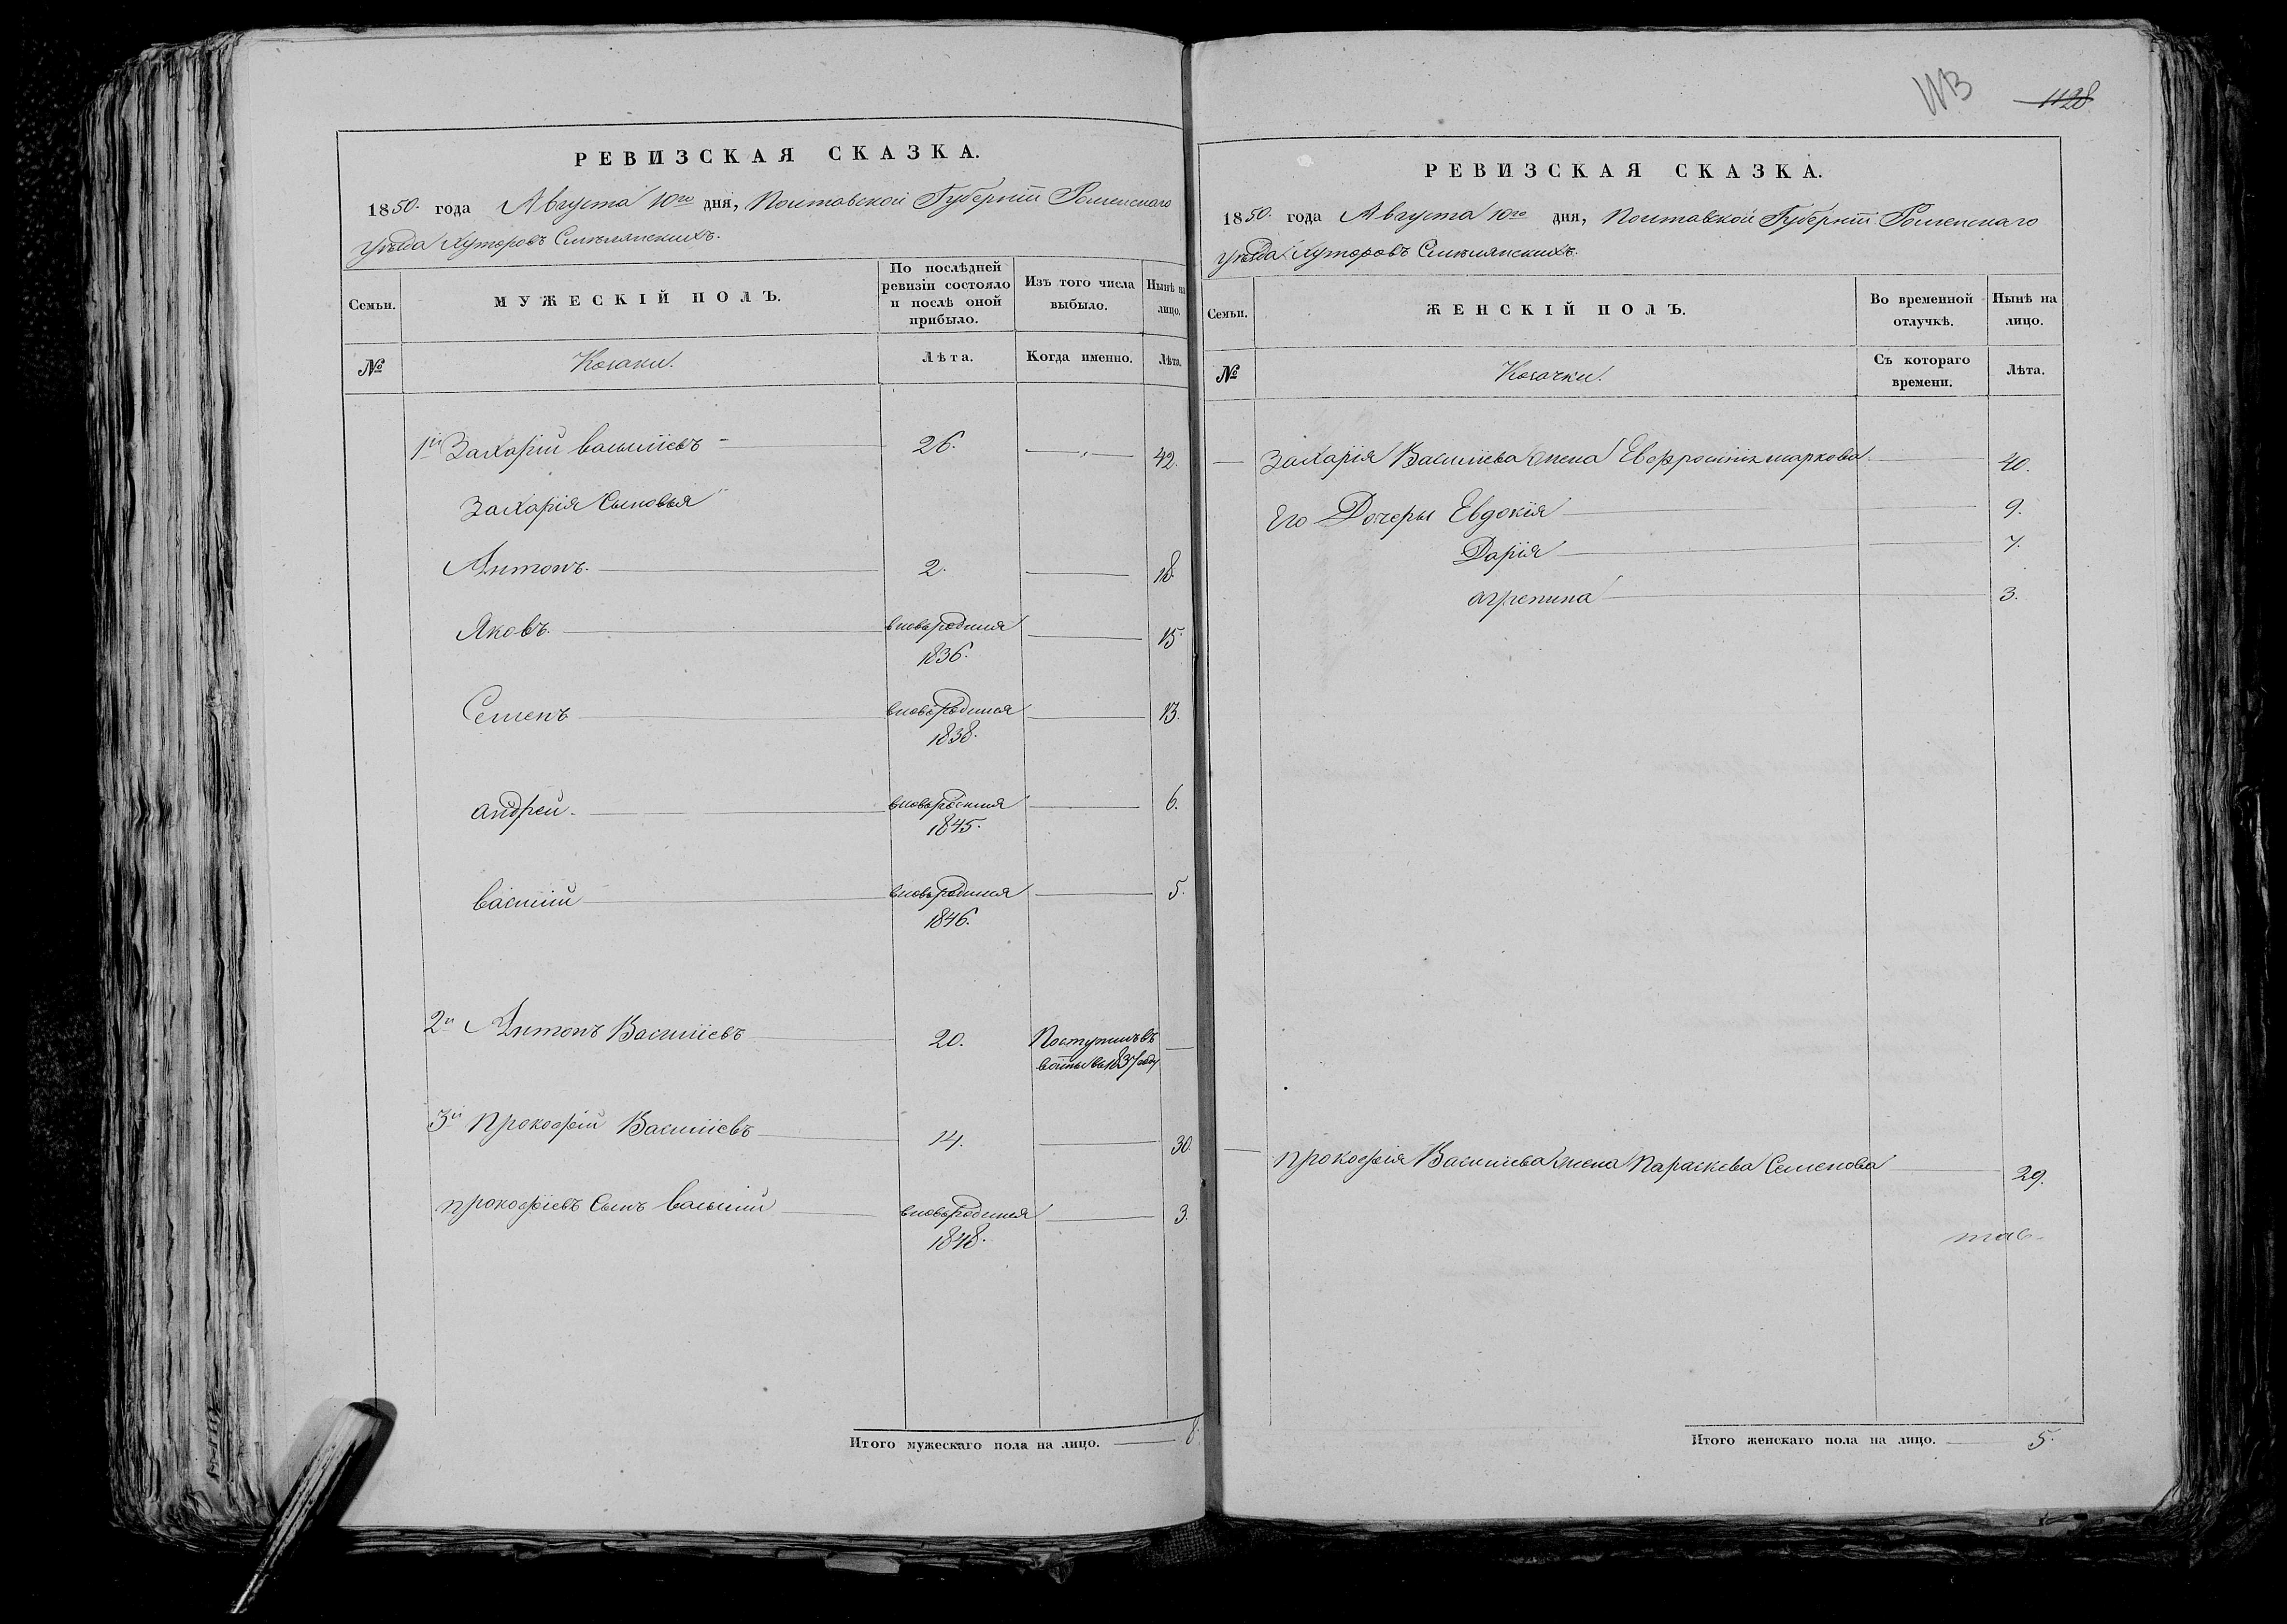 РЕВИЗСКАЯ СКАЗКА.
1850. года Августа 10го дня, Полтавской Губерніи Роменскаго
уѣзда Хуторовъ Смѣлянскихъ.
Семьи.
МУЖЕСКІЙ ПОЛЪ.
По послѣдней ревизіи состояло и послѣ оной прибыло.
Изъ того числа выбыло.
Нынѣ на лицо.
№
Козаки.
Лѣта.
Когда именно.
Лѣта.
1й Захарій Василіевъ 26. 42.
Захарія Сыновья
Антонъ. 2. 18.
Яковъ. вновьродился 15.
1836.
Семенъ вновьродился 13.
1838.
андрей. вновьродился 6.
1845.
василій вновьродился 5.
1846.
2й Антонъ Василіевъ 20. Поступилъ въ
1837 году
3й Прокофій Василіевъ 14. 30.
прокофіевъ Сынъ василій вновьродился 3.
1848.
Итого мужескаго пола на лицо. 8.
1128
РЕВИЗСКАЯ СКАЗКА.
1850. года Августа 10го дня, Полтавской Губерніи Роменскаго
уѣзда Хуторовъ Смѣлянскихъ.
Семьи.
ЖЕНСКІЙ ПОЛЪ.
Во временной отлучкѣ.
Нынѣ на лицо.
№
Козачки.
Съ котораго времени.
Лѣта.
Захарія Василіева жена Евфросинія маркова 40.
Его Дочеры Евдокія 9.
Дарія 7.
агрепина 3.
прокофія Василіева жена Параскева Семенова 29.
Итого женскаго пола на лицо. 5.